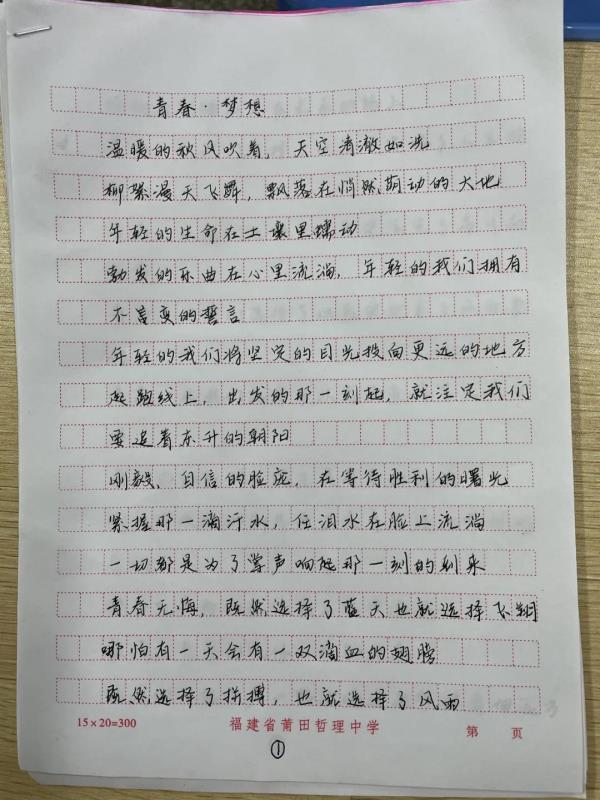 青春·梦想
温暖的秋风吹着，天空清澈如洗
柳絮漫天飞舞，飘落在悄然萌动的大地
年轻的生命在土壤里蠕动
勃发的乐曲在心里流淌，年轻的我们拥有
不变的誓言
年轻的我们将坚定的目光投向更远的地方
起跑线上，出发的那一刻起，就注定我们
要追着东升的朝阳
刚毅、自信的脸庞，在等待胜利的曙光
紧握那一滴汗水，任泪水在脸上流淌
一切都是为了掌声响起那一刻的到来
青春无悔，既然选择了蓝天也就选择飞翔
哪怕有一天会有一双滴血的翅膀
既然选择了拼搏，也就选择了风雨
15×20=300
福建省莆田哲理中学
第 页
①